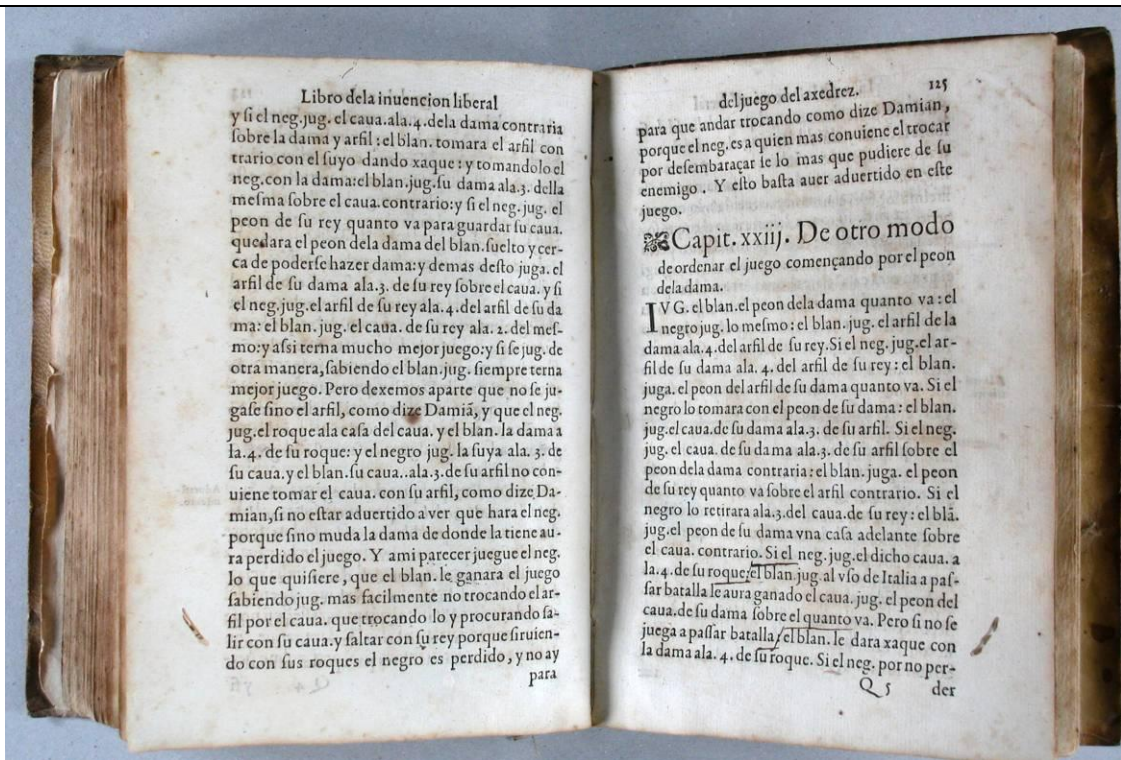 Libro dela inuencion liberal
y ſi el neg.jug. el caua.ala.4.dela dama contraria
ſobre la dama y arfil : el blan. tomara el arfil con
trario con el ſuyo dando xaque : y tomandolo el
neg.con la dama:el blan.jug.ſu dama ala.3. della
meſma ſobre el caua.contrario:y ſi el neg.jug. el
peon de ſu rey quanto va para guardar ſu caua.
quedara el peon dela dama del blan.ſuelto y cer-
ca de poderſe hazer dama:y demas deſto juga. el
arfil de ſu dama ala.3. de ſu rey ſobre el caua. y ſi
el neg.jug.el arfil de ſu rey ala. 4.del arfil de ſu da
ma: el blan. jug. el caua. de ſu rey ala. 2. del meſ-
mo:y aſsi terna mucho mejor juego:y ſi ſe jug. de
otra manera, ſabiendo el blan.jug. ſiempre terna
mejor juego. Pero dexemos aparte que no ſe ju-
gaſe ſino el arfil, como dize Damiã, y que el neg.
jug.el roque ala caſa del caua. y el blan. la dama a
la.4. de ſu roque: y el negro jug. la ſuya ala. 3. de
ſu caua.y el blan.ſu caua..ala.3.de ſu arfil no con-
uiene tomar el caua. con ſu arfil, como dize Da-
mian,ſi no eſtar aduertido a ver que hara el neg.
porque ſino muda la dama de donde la tiene au-
ra perdido el juego. Y ami parecer juegue el neg.
lo que quiſiere, que el blan. le ganara el juego
ſabiendo jug. mas facilmente no trocando el ar-
fil por el caua. que trocando lo y procurando ſa-
lir con ſu caua.y ſaltar con ſu rey porque ſiruien-
do con sus roques el negro es perdido, y no ay
para
del juego del axedrez. 125
para que andar trocando como dize Damian,
porque el neg. es a quien mas conuiene el trocar
por deſembaraçar ſe lo mas que pudiere de ſu
enemigo. Y eſto baſta auer aduertido en eſte
juego.
Capit. xxiij. De otro modo
de ordenar el juego començando por el peon
dela dama.
IVG. el blan.el peon dela dama quanto va : el
negro jug. lo meſmo : el blan. jug. el arfil de la
dama ala.4.del arfil de ſu rey.Si el neg. jug.el ar-
fil de ſu dama ala. 4. del arfil de ſu rey : el blan.
juga. el peon del arfil de ſu dama quanto va. Si el
negro lo tomara con el peon de ſu dama : el blan.
jug.el caua.de ſu dama ala.3. de ſu arfil. Si el neg.
jug. el caua. de ſu dama ala.3. de ſu arfil ſobre el
peon dela dama contraria : el blan. juga. el peon
de ſu rey quanto va ſobre el arfil contrario. Si el
negro lo retirara ala.3.del caua. de ſu rey: el blã.
jug.el peon de ſu dama vna caſa adelante ſobre
el caua. contrario. Si el neg. jug.el dicho caua. a
la.4.de ſu roque:el blan.jug.al vſo de Italia a paſ-
ſar batalla le aura ganado el caua. jug. el peon del
caua.de ſu dama ſobre el quanto va. Pero ſi no ſe
juega a paſſar batalla, el blan. le dara xaque con
la dama ala. 4. de ſu roque. Si el neg. por no per-
Q 5 der